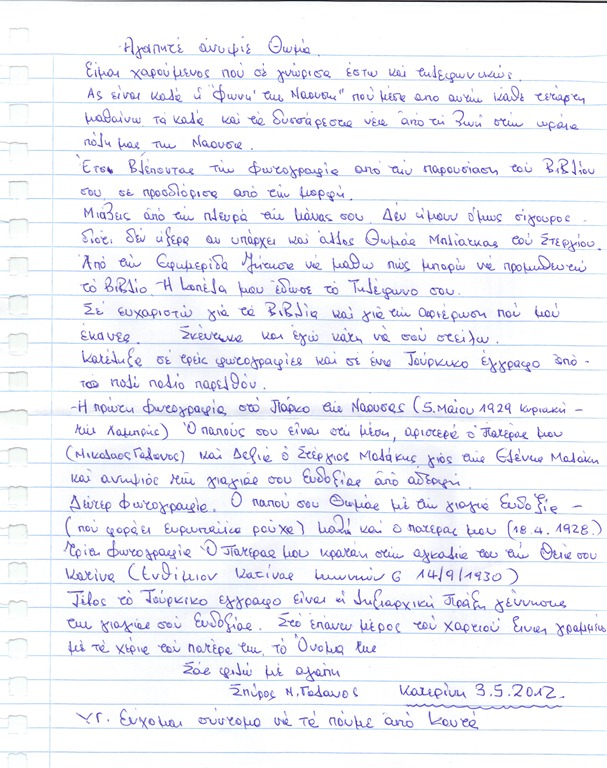 Αγαπητέ ανυψιέ Θωμά.
Είμαι χαρούμενος πού σέ γνώρισα έστω και τηλεφωνικώς.
Ας είναι καλά η "φωνή της Ναουσης" πού μέσα απο αυτήν κάθε τετάρτη
μαθαίνω τα καλά και τα δυσσάρεστα νέα από τη ζωή στην ωραία
πόλη μας την Ναουσα.
Έτσι βλέποντας την φωτογραφία από την παρουσίαση του Βιβλίου
σου σε προσδιόρισα από την μορφή.
Μιάζεις από την πλευρά της μάνας σου. Δεν ήμουν όμως σίγουρος
διότι δεν ήξερα αν υπάρχει και άλλος Θωμάς Μπλιάτκας του Στεργίου.
Από την Εφημερίδα ζήτησα νά μάθω πώς μπορώ νά προμηθευτώ
τό Βιβλίο. Η κοπέλα μου έδωσε τό Τηλέφωνο σου.
Σέ ευχαριστώ γιά τα Βιβλία και γιά την αφιέρωση πού μού
έκανες. Σκέυτηκα και εγώ κάτη νά σού στείλω.
Κατέληξα σέ τρείς φωτογραφίες και σέ ένα Τούρκικο έγγραφο από-
το πολύ παλιό παρελθόν.
-Η πρώτη φωτογραφία στό Πάρκο της Ναουσας (5. Μαίου 1929 κυριακή -
της Λαμπρής) Ο παπούς σου είναι στη μέση, αριστερά ο Πατέρας μου
(Νικόλαος Γαλανος) και Δεξιά ο Στέργιος Ματάκης γιός της Ελένης Ματάκη
και ανιψιός της γιαγιάς σου Ευδοξίας από αδερφή.
Δεύτερ φωτογραφία. Ο παπού σου Θωμάς μέ την γιαγιά Ευδοξία -
(πού φοράει ευρωπαικα ρούχα) μαζή και ο πατέρας μου (18.4.1928.)
Τρίτη φωτογραφία Ο Πατέρας μου κρατάη στην αγκαλιά του την Θεία σου
Κατίνα (Ενθύμιον Κατίνας μηνών 6 14/9/1930)
Τέλος τό Τούρκικο έγγραφο είναι η Ληξιαρχική Πράξη γέννησης
της γιαγιάς σου Ευδοξίας. Στό επάνω μέρος του χαρτιού είναι γραμμένο
μέ τά χέρια τού πατέρα της, τό Όνομα της
Σάς φιλώ μέ αγάπη
Σπύρος Ν. Γαλανος Κατερίνη 3.5.2012.
Υ.Γ. Εύχομαι σύντομα νά τά πούμε από κοντά